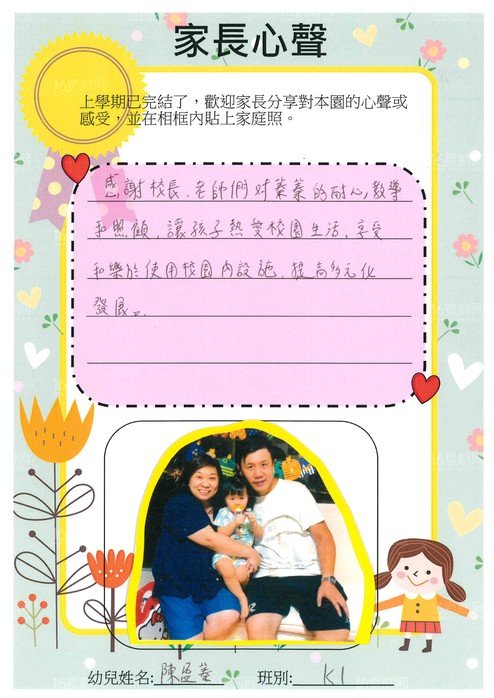 家長心聲
上學期已完結了，歡迎家長分享對本園的心聲或
感受，並在相框內貼上家庭照。
感謝校長、老師們對蓁蓁的耐心教導
和照顧，讓孩子熱愛校園生活，享受
和樂於使用校園內設施，提高多元化
發展。
幼兒姓名: 陳
班別: K1